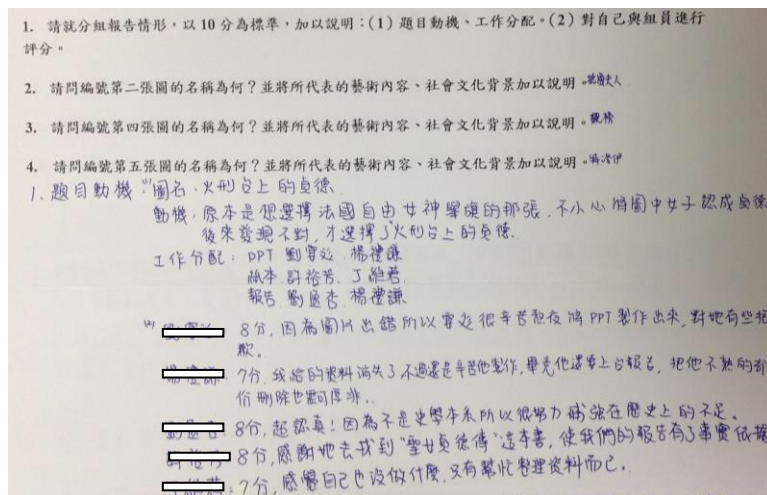 1. 請就分組報告情形，以 10 分為標準，加以說明：(1) 題目動機、工作分配。(2) 對自己與組員進行
評分。
2. 請問編號第二張圖的名稱為何？並將所代表的藝術內容、社會文化背景加以說明。夫人
3. 請問編號第四張圖的名稱為何？並將所代表的藝術內容、社會文化背景加以說明。
4. 請問編號第五張圖的名稱為何？並將所代表的藝術內容、社會文化背景加以說明。
1. 題目動機：(1)圖名：火刑台上的貞德
動機：原本是想選擇法國自由女神舉旗的那張，不小心將圖中女子認成貞德
後來發現不對，才選擇了火刑台上的貞德.
工作分配：PPT 劉 楊禮謙
紙本. 許裕芳. 丁維君.
報告 劉 楊禮謙
(2) 8分, 因為圖片出錯所以 很辛苦熬夜將PPT製作出來, 對她有些抱
歉。
7分. 我給的資料消失了不過還是辛苦他製作, 畢竟他還要上台報告, 把他不熟的部
份刪除也無可厚非..
8分, 超認真！因為不是史學本系所以很努力補強在歷史上的不足。
8分, 感謝她去找到"聖女貞德傳"這本書, 使我們的報告有了事實依據
7分, 感覺自己也沒做什麼, 只有幫忙整理資料而已.